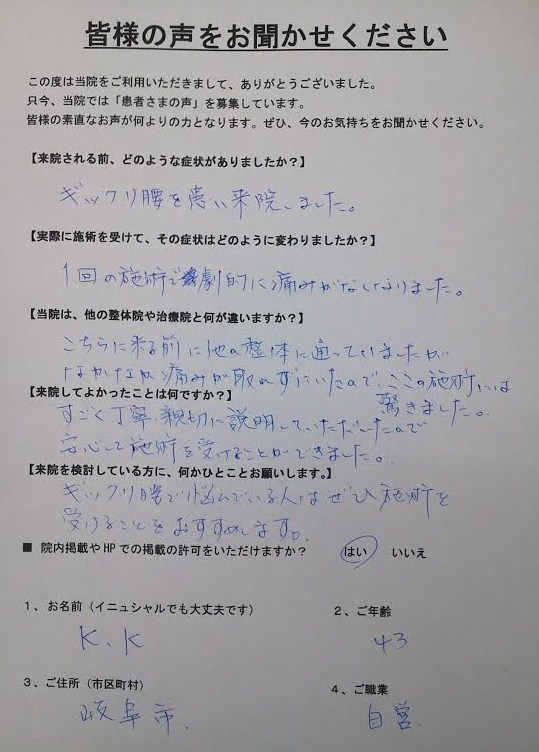 皆様の声をお聞かせください
この度は当院をご利用いただきまして、ありがとうございました。
只今、当院では「患者さまの声」を募集しています。
皆様の素直なお声が何よりの力となります。ぜひ、今のお気持ちをお聞かせください。
【来院される前、どのような症状がありましたか？】
ギックリ腰を患い来院しました。
【実際に施術を受けて、その症状はどのように変わりましたか？】
1回の施術で劇的に痛みがなくなりました。
【当院は、他の整体院や治療院と何が違いますか？】
こちらに来る前に他の整体に通っていましたが
なかなか痛みが取れずにいたので、ここの施術には
驚きました。
【来院してよかったことは何ですか？】
すごく丁寧、親切に説明していただいたので
安心して施術を受けることができました。
【来院を検討している方に、何かひとことお願いします。】
ギックリ腰で悩んでいる人はぜひ施術を
受けることをおすすめします。
■ 院内掲載やHPでの掲載の許可をいただけますか？ はい いいえ
1、お名前（イニュシャルでも大丈夫です） 2、ご年齢
K、K 43
3、ご住所（市区町村） 4、ご職業
岐阜市、 自営、